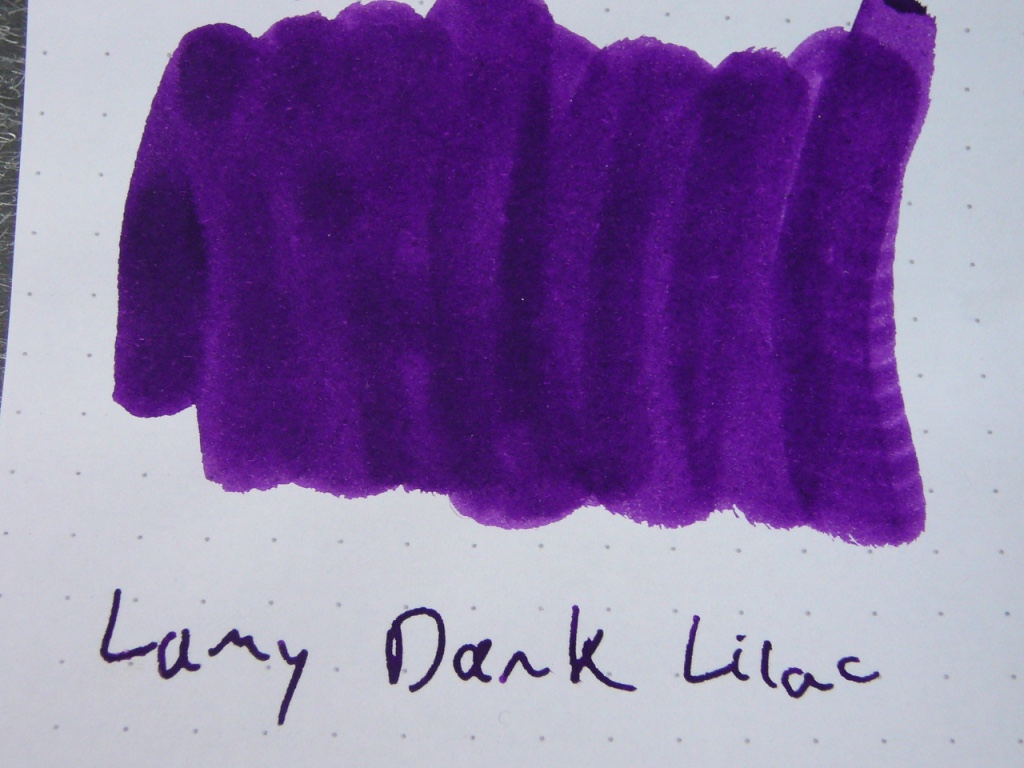 Lamy Dark Lilac